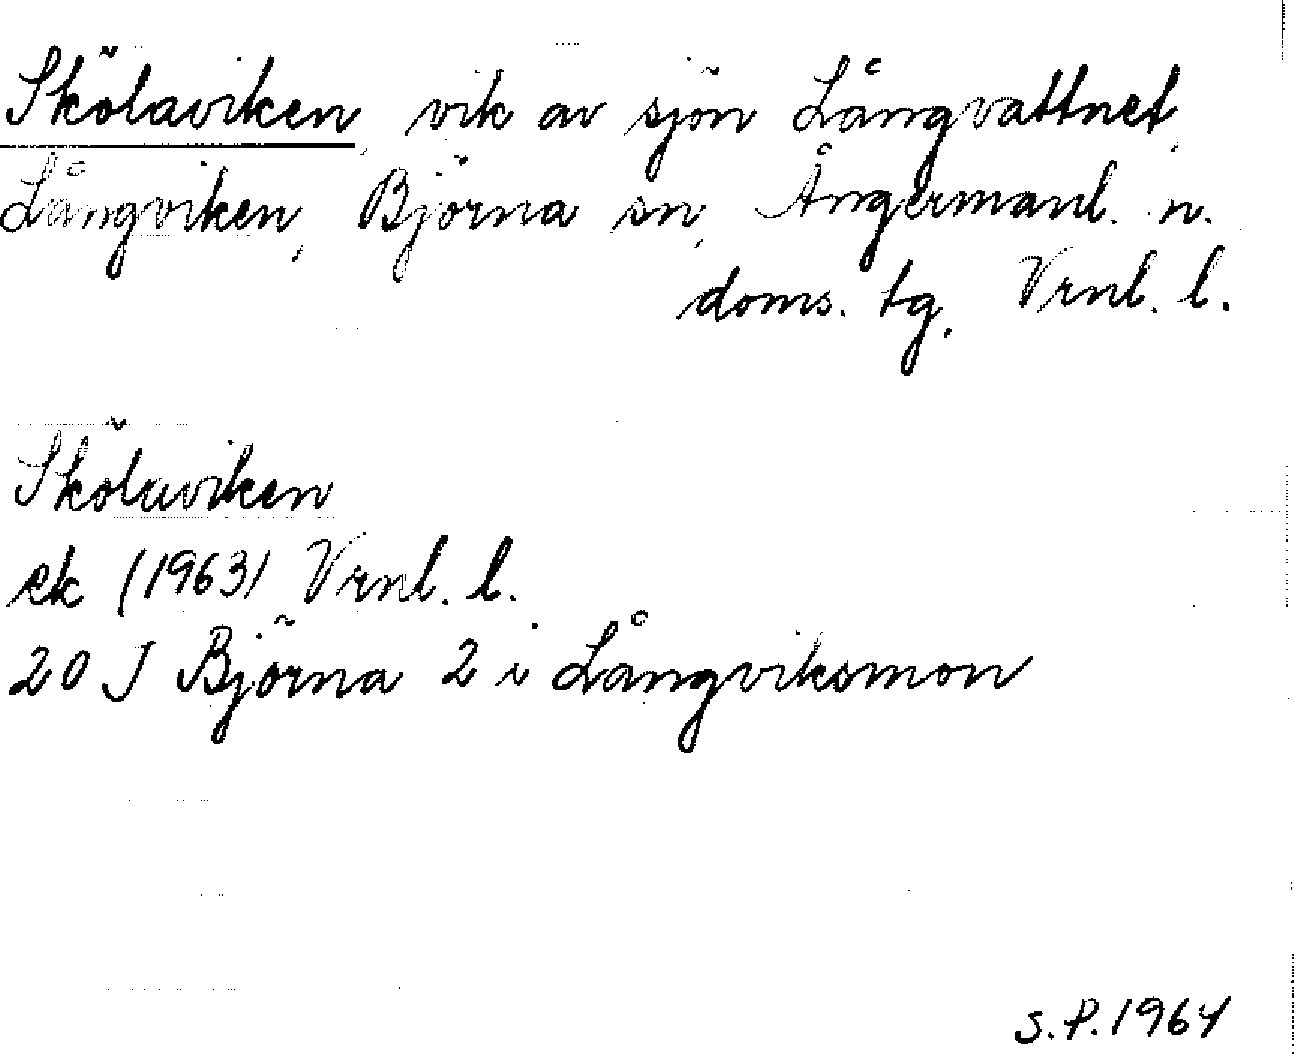 Skölaviken, vik av sjön Långvattnet,
Långviken, Björna sn, Ångermanl. n.
doms. tg, Vrnl. l.
Skölaviken
ek (1963) Vrnl. l.
20 J Björna 2 i Långviksmon
S.P. 1964